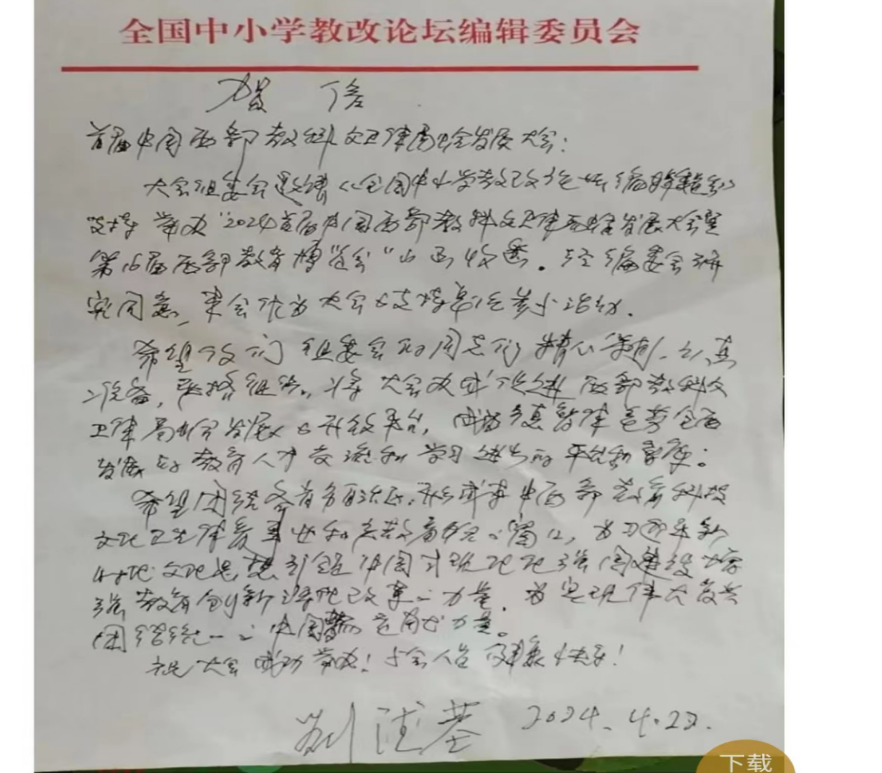 全国中小学教改论坛编辑委员会
贺信
首届中国西部教科文卫体高峰会发展大会：
大会组委会邀请《全国中小学教改论坛编辑委员会》
支持举办"2024首届中国西部教科文卫体高峰发展大会暨
第16届西部教育博览会"山西收悉。经编委会研
究同意，来会作为大会的支持单位参与活动。
希望你们组委会的同志们精心策划、认真
准备，严格组织。将大会办成促进西部教科文
卫体高峰会发展的开放平台，成为德智体美劳全面
发展的教育人才交流和学习进步的平台和家庭。
希望团结各省自治区，形成中西部教育科技
文化卫生体育事业和
文化思想引领中国式现代化强国建设
强教育创新深化改革的力量，为实现伟大复兴
团结统一的中国贡献力量。
祝大会成功举办！与会人员健康快乐！
2024.4.22.
下载